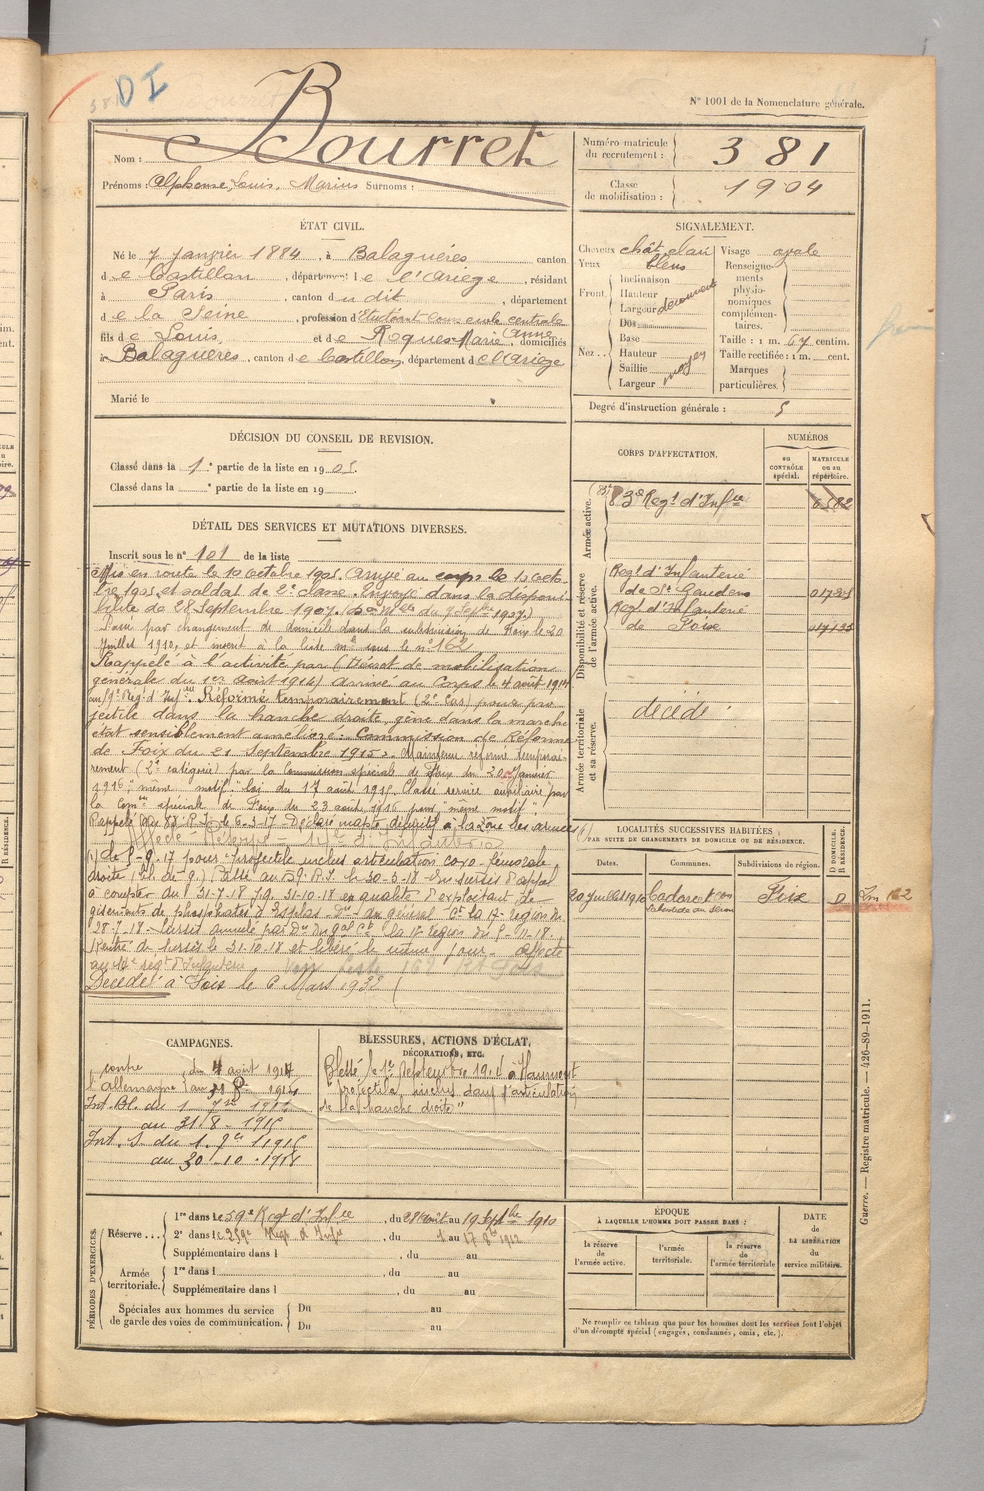 DI
N° 1001 de la Nomenclature générale.
Nom : Bourret
Prénoms : Alphonse, Louis, Marius Surnoms :
Numéro matricule du recrutement : 381
Classe de mobilisation : 1904
ÉTAT CIVIL.
Né le 7 janvier 1884, à Balaguères canton
de Castillon, département de l'Ariège, résidant
à Paris, canton du dit, département
de la Seine, profession d'étudiant école centrale
fils de Louis, et de Roques Marie Anne, domiciliés
à Balaguères, canton de Castillon, département de l'Ariège
Marié le
SIGNALEMENT.
Cheveux chât clair
Yeux bleus
Front. Inclinaison
Hauteur
Largeur
Nez... Dos
Base
Hauteur
Saillie
Largeur moyen
Visage ovale
Renseignements physionomiques complémentaires.
Taille : 1 m. 67 centim.
Taille rectifiée : 1 m. cent.
Marques particulières.
Degré d'instruction générale : 5
DÉCISION DU CONSEIL DE REVISION.
Classé dans la 1e partie de la liste en 1905.
Classé dans la e partie de la liste en 19
DÉTAIL DES SERVICES ET MUTATIONS DIVERSES.
Inscrit sous le n° 101 de la liste
Mis en route le 10 octobre 1905. Arrivé au corps le 10 octo-
bre 1905 et soldat de 2e classe. Envoyé dans la disponi-
bilité le 28 Septembre 1907.
Passé par changement de domicile dans la subdivision de Foix le 20
juillet 1910, et inscrit à la liste mle sous le n° 162
Rappelé à l'activité par (Décret de mobilisation
générale du 1er août 1914) arrivé au Corps le 4 août 1914
Réformé temporairement (2e Cas) pour pro-
jectile dans la hanche droite, gêne dans la marche
état sensiblement amélioré. Commission de Réforme
de Foix du 21 Septembre 1915. Maintenu réformé tempora-
rement (2e catégorie) par la Commission spéciale de Foix du 20 Janvier
1916, "même motif". loi du 17 août 1915. Classé service auxiliaire par
la comon spéciale de Foix du 23 août 1916 pour "même motif"
Rappelé au 83e R.I. le 6-3-17. Déclaré inapte définitif à la zone des armées
pour "Projectile inclus articulation coxo-fémorale
droite. Passé au 59 R.I. le 30-3-18. En sursis d'appel
à compter du 31-7-18 jqu 31-10-18 en qualité d'exploitant de
gisements de phosphates d'Esplas. Don du général Ct la 17e région du
28-7-18. Sursis annulé par Don du gal Ct la 17e région du
Rentré de sursis le 31-10-18 et libéré le même jour. Affecté
Décédé à Foix le 6 Mars 1932
CORPS D'AFFECTATION.
NUMÉROS
au CONTRÔLE spécial.
MATRICULE ou au répertoire.
Armée active.
83e Regt d'Infie 6582
Disponibilité et réserve de l'armée active.
Regt d'Infanterie
de St Gaudens
Regt d'Infanterie
de Foix
Armée territoriale et sa réserve.
décédé
LOCALITÉS SUCCESSIVES HABITÉES
PAR SUITE DE CHANGEMENTS DE DOMICILE OU DE RÉSIDENCE.
Dates. Communes. Subdivisions de région. D DOMICILE. R RÉSIDENCE.
20 Juillet 1910 Cadarcet Foix D 162
Labastide de Sérou
CAMPAGNES.
contre l'Allemagne du 4 août 1914
au 31 1914
Int. Bl. du 1 1914
au 31/8 - 1915
Int. S. du 1. 1915
au 30 - 10 - 1918
BLESSURES, ACTIONS D'ÉCLAT,
DÉCORATIONS, ETC.
Blessé le 1er Septembre 1914 à Haumont
"projectile inclus dans l'articulation
de la hanche droite"
PÉRIODES D'EXERCICES.
Réserve... 1re dans le 59e Regt d'Infie, du 28 août au 19 Septbre 1910
2e dans le 259e Regt d'Infie, du 1 au 17 8bre 1912
Supplémentaire dans l , du au
Armée territoriale. 1re dans l , du au
Supplémentaire dans l , du au
Spéciales aux hommes du service de garde des voies de communication. Du au
Du au
ÉPOQUE
À LAQUELLE L'HOMME DOIT PASSER DANS :
la réserve de l'armée active.
l'armée territoriale.
la réserve de l'armée territoriale
DATE DE LA LIBÉRATION du service militaire.
Ne remplir ce tableau que pour les hommes dont les services font l'objet
d'un décompte spécial (engagés, condamnés, omis, etc.).
Guerre. — Registre matricule. — 426-89-1911.